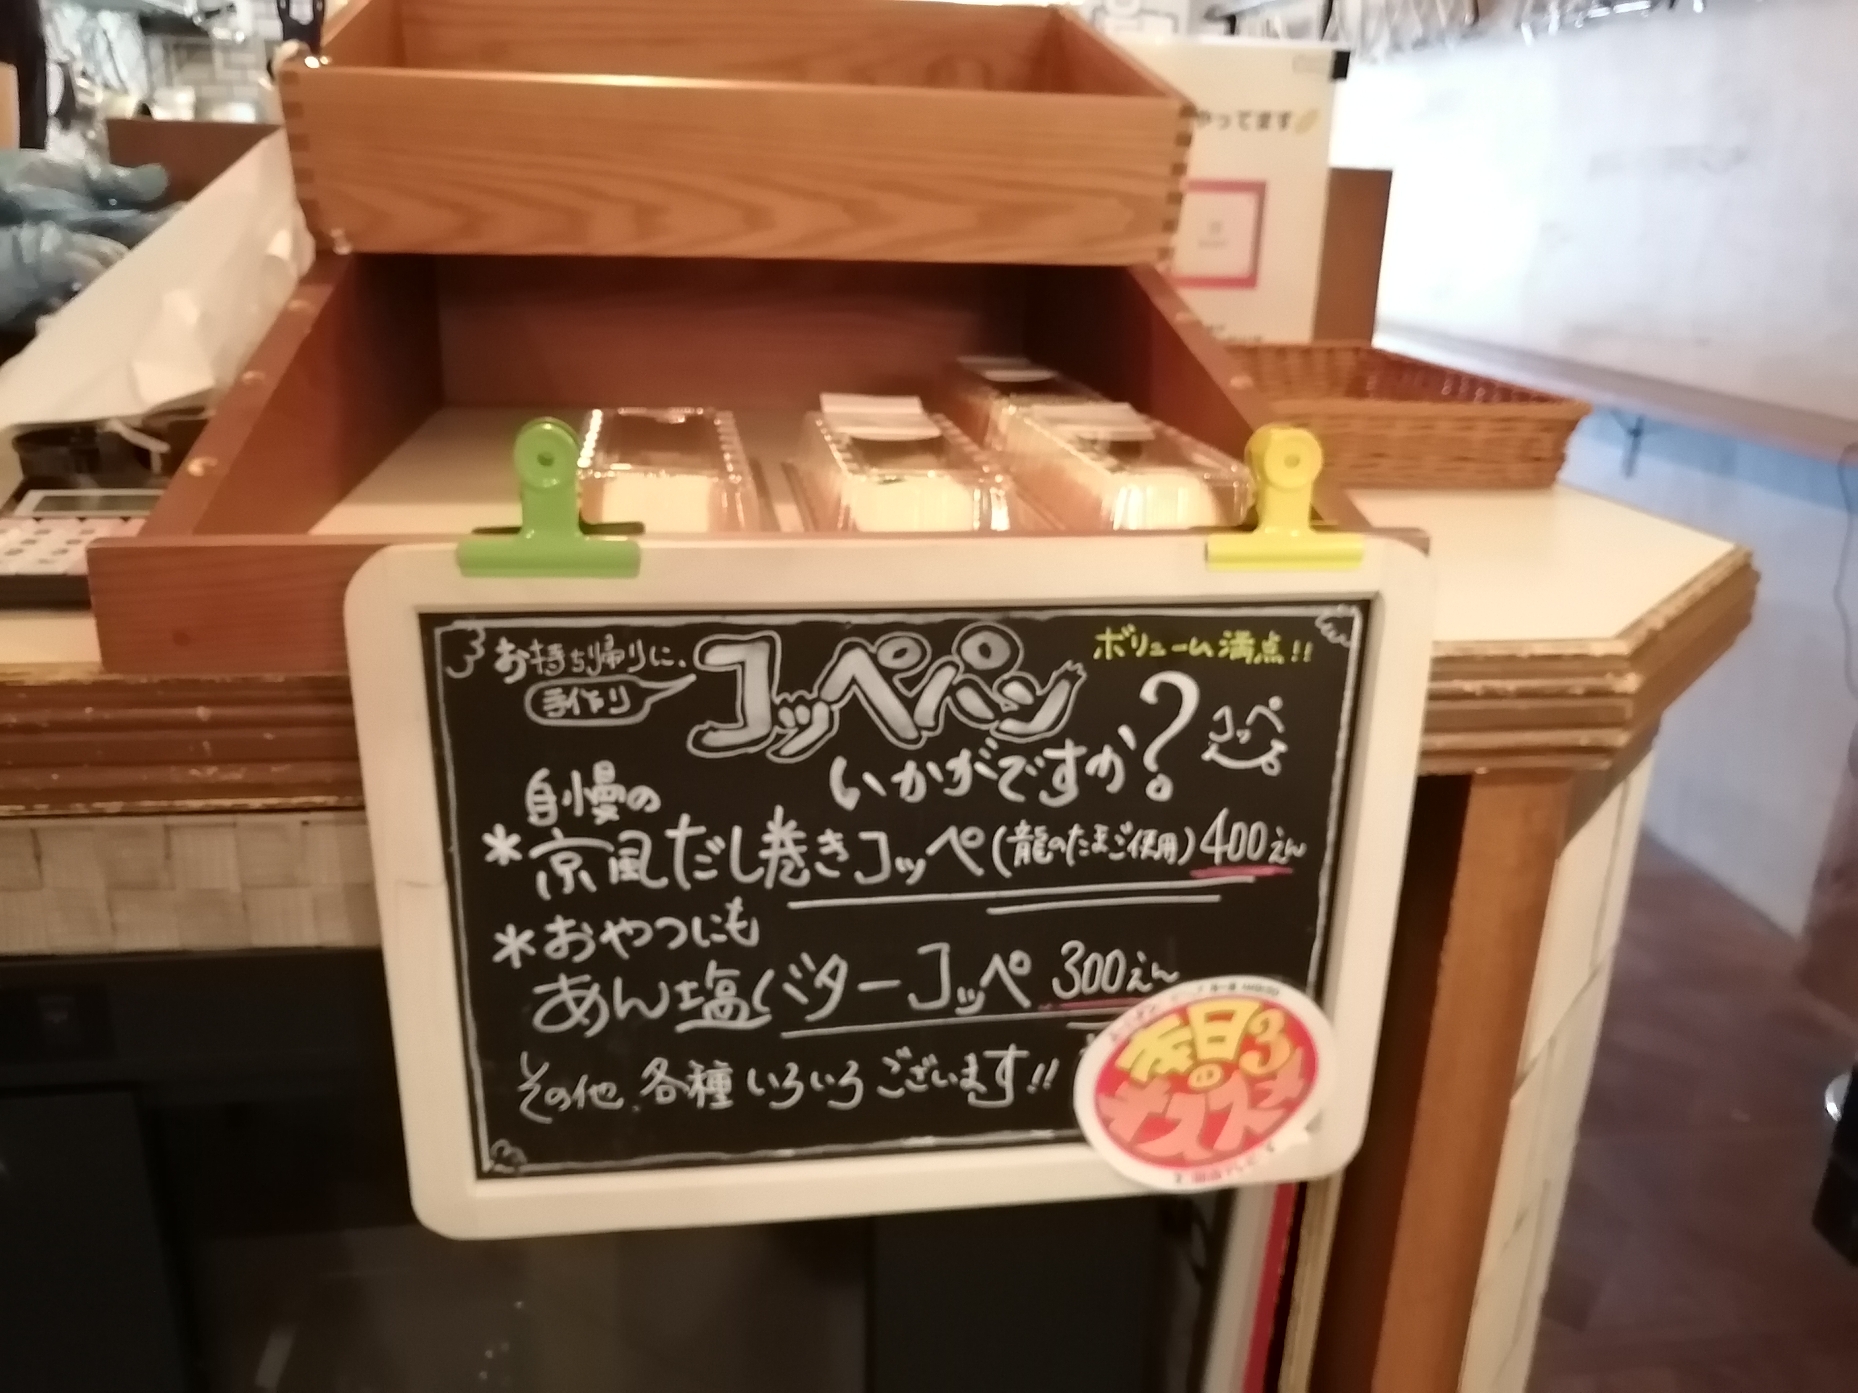 やってます
お持ち帰りに、
手作り
コッペパン
いかがですか?
ボリューム満点!!
コッペ
自慢の
*京風だし巻きコッペ(龍のたまご使用)400えん
*おやつにも
あん塩バターコッペ 300えん
その他、各種いろいろございます!!
毎日3
の
オススメ